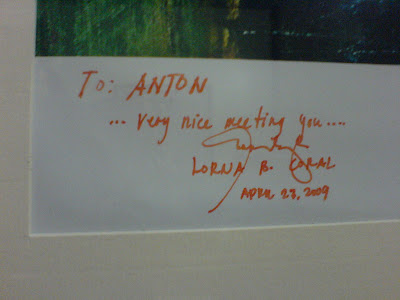 To: ANTON
... very nice meeting you....
LORNA B. CORAL
APRIL 23, 2009